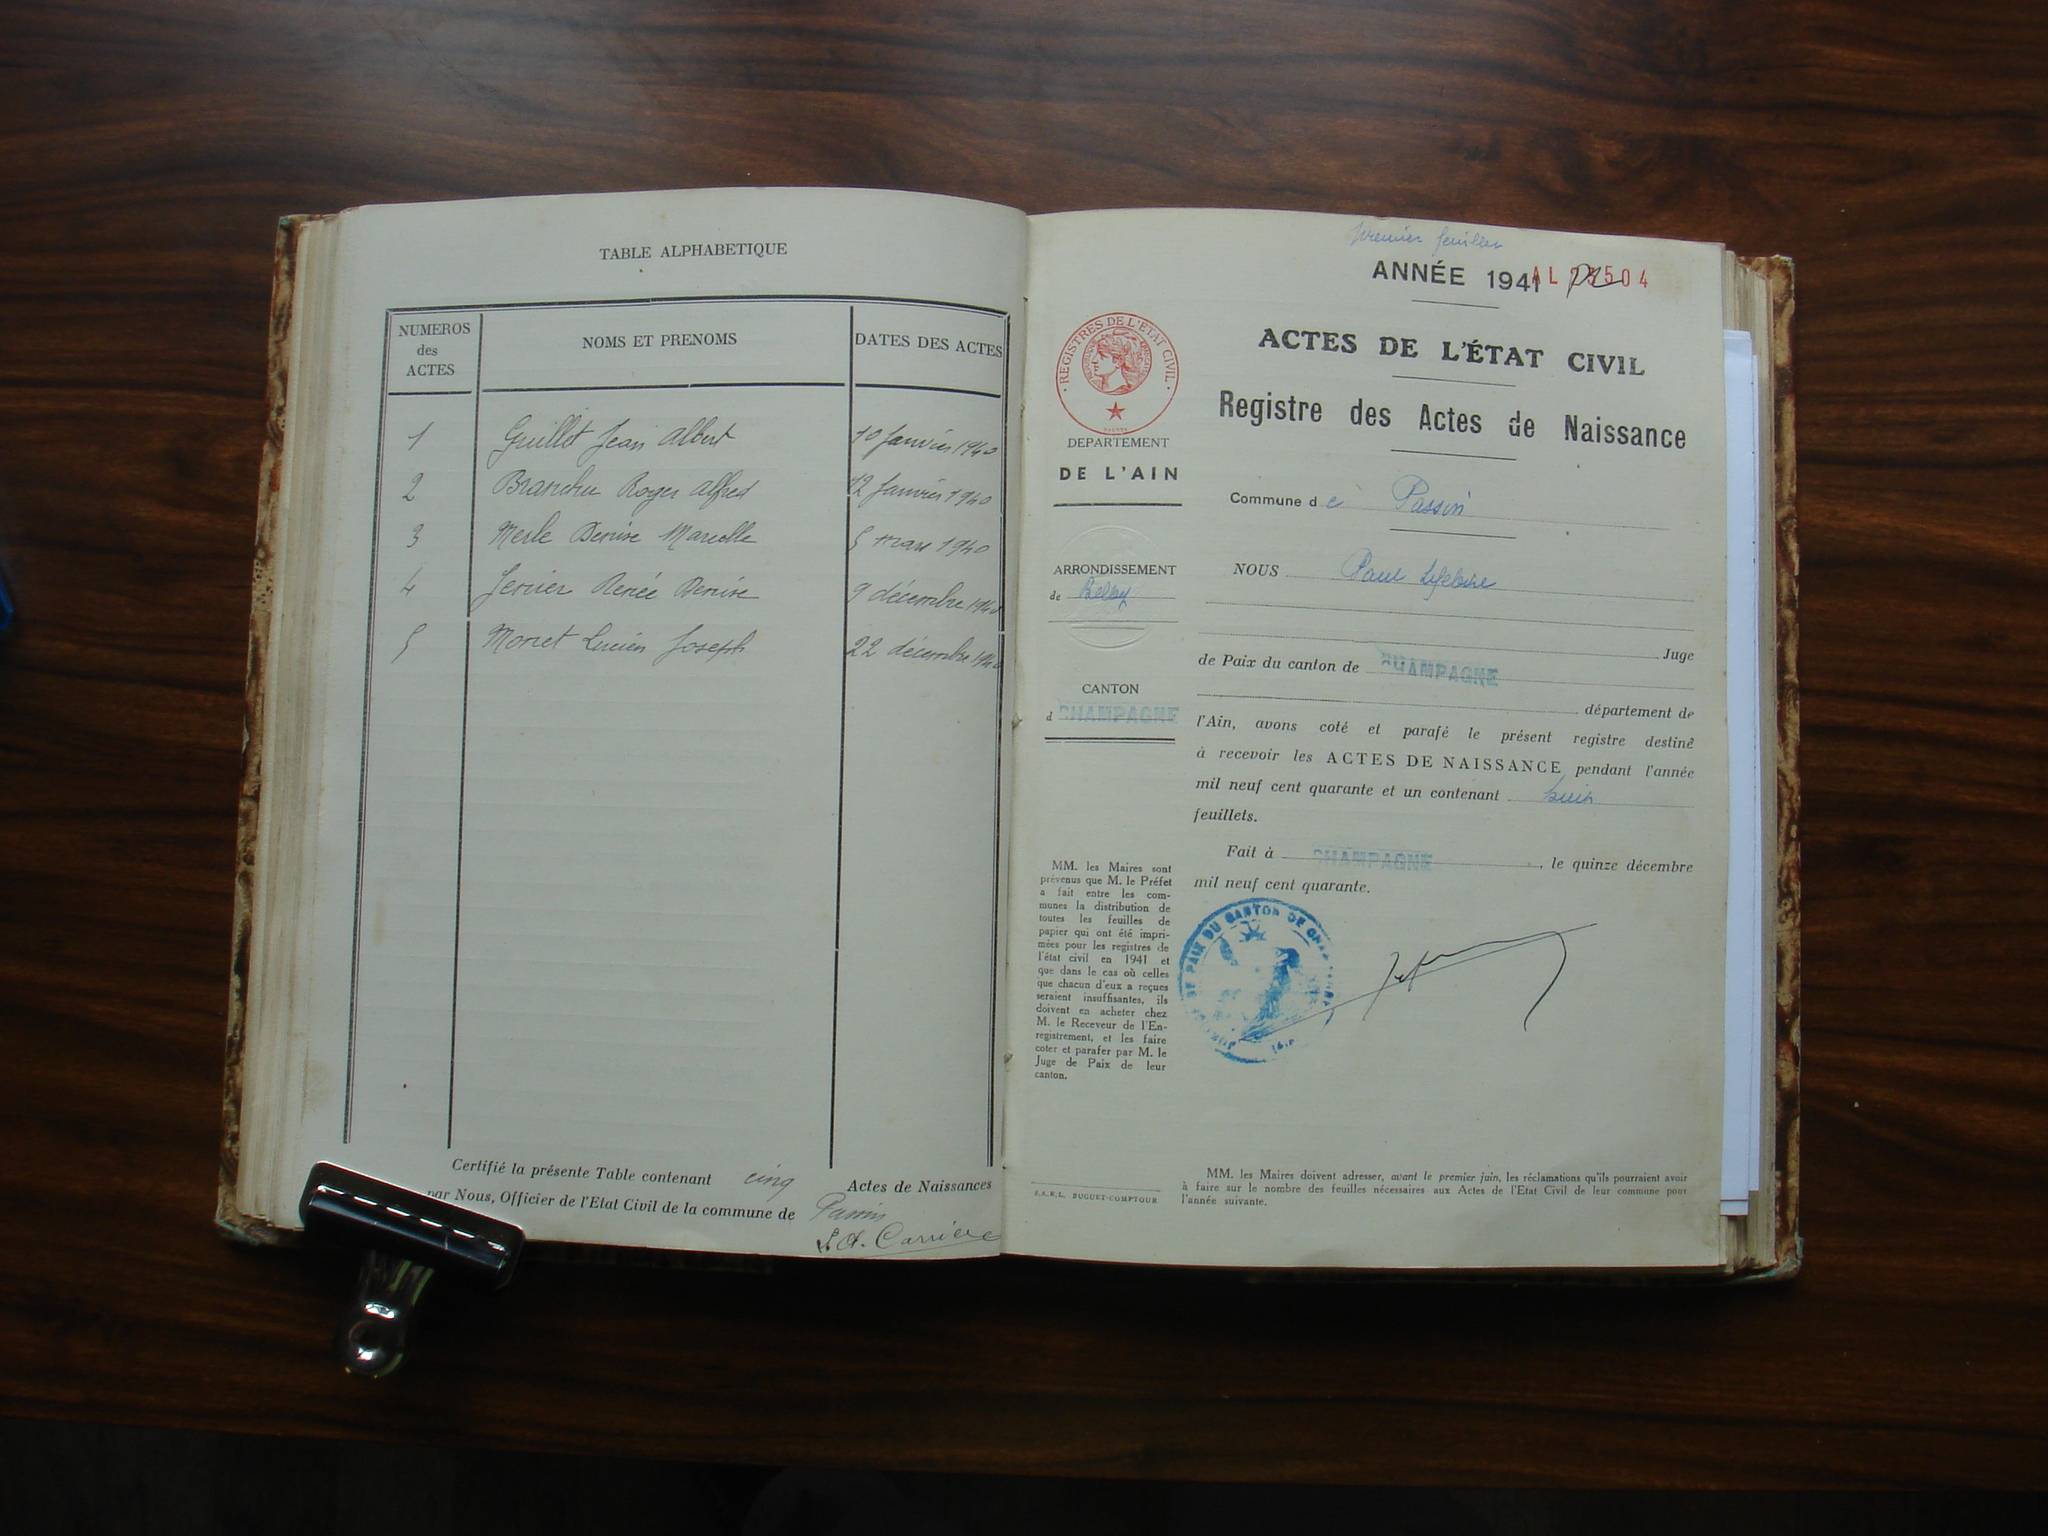 TABLE ALPHABETIQUE
NUMEROS
des
ACTES
NOMS ET PRENOMS
DATES DES ACTES
1 Guillet Jean Albert 10 Janvier 1940
2 Roger Alfred 12 Janvier 1940
3 Merle Denise Marcelle 5 mars 1940
4 Renée Denise 9 décembre 1940
5 Lucien Joseph 22 décembre 1940
Certifié la présente Table contenant cinq Actes de Naissances
par Nous, Officier de l'Etat Civil de la commune de Passin
Carrière
premier feuillet
ANNÉE 1941
AL 23504
ACTES DE L'ÉTAT CIVIL
Registre des Actes de Naissance
REGISTRES DE L'ETAT CIVIL
DEPARTEMENT
DE L'AIN
Commune de Passin
ARRONDISSEMENT
de Belley
NOUS Paul Lefebvre
Juge
de Paix du canton de CHAMPAGNE
CANTON
d CHAMPAGNE
département de
l'Ain, avons coté et parafé le présent registre destiné
à recevoir les ACTES DE NAISSANCE pendant l'année
mil neuf cent quarante et un contenant huit
feuillets.
Fait à CHAMPAGNE, le quinze décembre
mil neuf cent quarante.
MM. les Maires sont
prévenus que M. le Préfet
a fait entre les com-
munes la distribution de
toutes les feuilles de
papier qui ont été impri-
mées pour les registres de
l'état civil en 1941 et
que dans le cas où celles
que chacun d'eux a reçues
seraient insuffisantes, ils
doivent en acheter chez
M. le Receveur de l'En-
registrement, et les faire
coter et parafer par M. le
Juge de Paix de leur
canton.
DE PAIX DU CANTON DE
S.A.R.L. BUGUET-COMPTOUR
MM. les Maires doivent adresser, avant le premier juin, les réclamations qu'ils pourraient avoir
à faire sur le nombre des feuilles nécessaires aux Actes de l'Etat Civil de leur commune pour
l'année suivante.